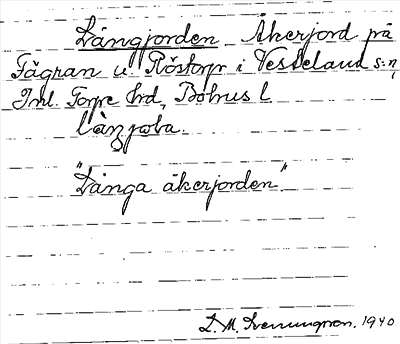 Långjorden Åkerjord på
Tägran u. Röstorp i Vesteland s:n,
Inl. Torpe hrd, Bohus l.
långjola.
"Långa åkerjorden"
L. M. Svenungson. 1940